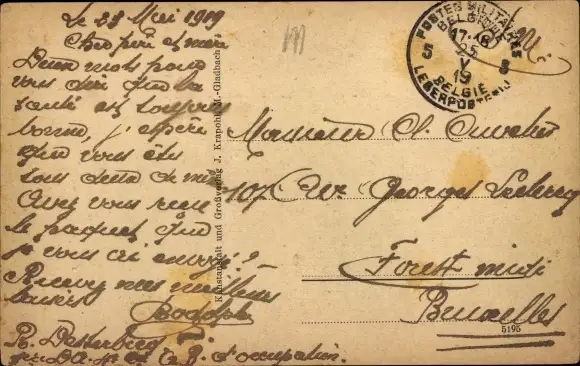 Le 25 Mai 1919
Cher père et mère
Deux mots pour
vous dire que la
santé est toujours
bonne, j'espère
que vous êtes
tous deux de même
Avez vous reçu
le paquet que
je vous ai envoyé?
Recevez mes meilleurs
baisers
Rodolphe
R. Desterberg
D.A. T. d'occupation.
Kunstanstalt und Großverlag J. Krapohl, M.-Gladbach
POSTES MILITAIRES
BELGIQUE
5 17-18 5
25
V
19
BELGIË
LEGERPOSTERIJ
S.M.
Monsieur Ch.
107 Av. Georges Leclercq
Forest midi
Bruxelles
5195